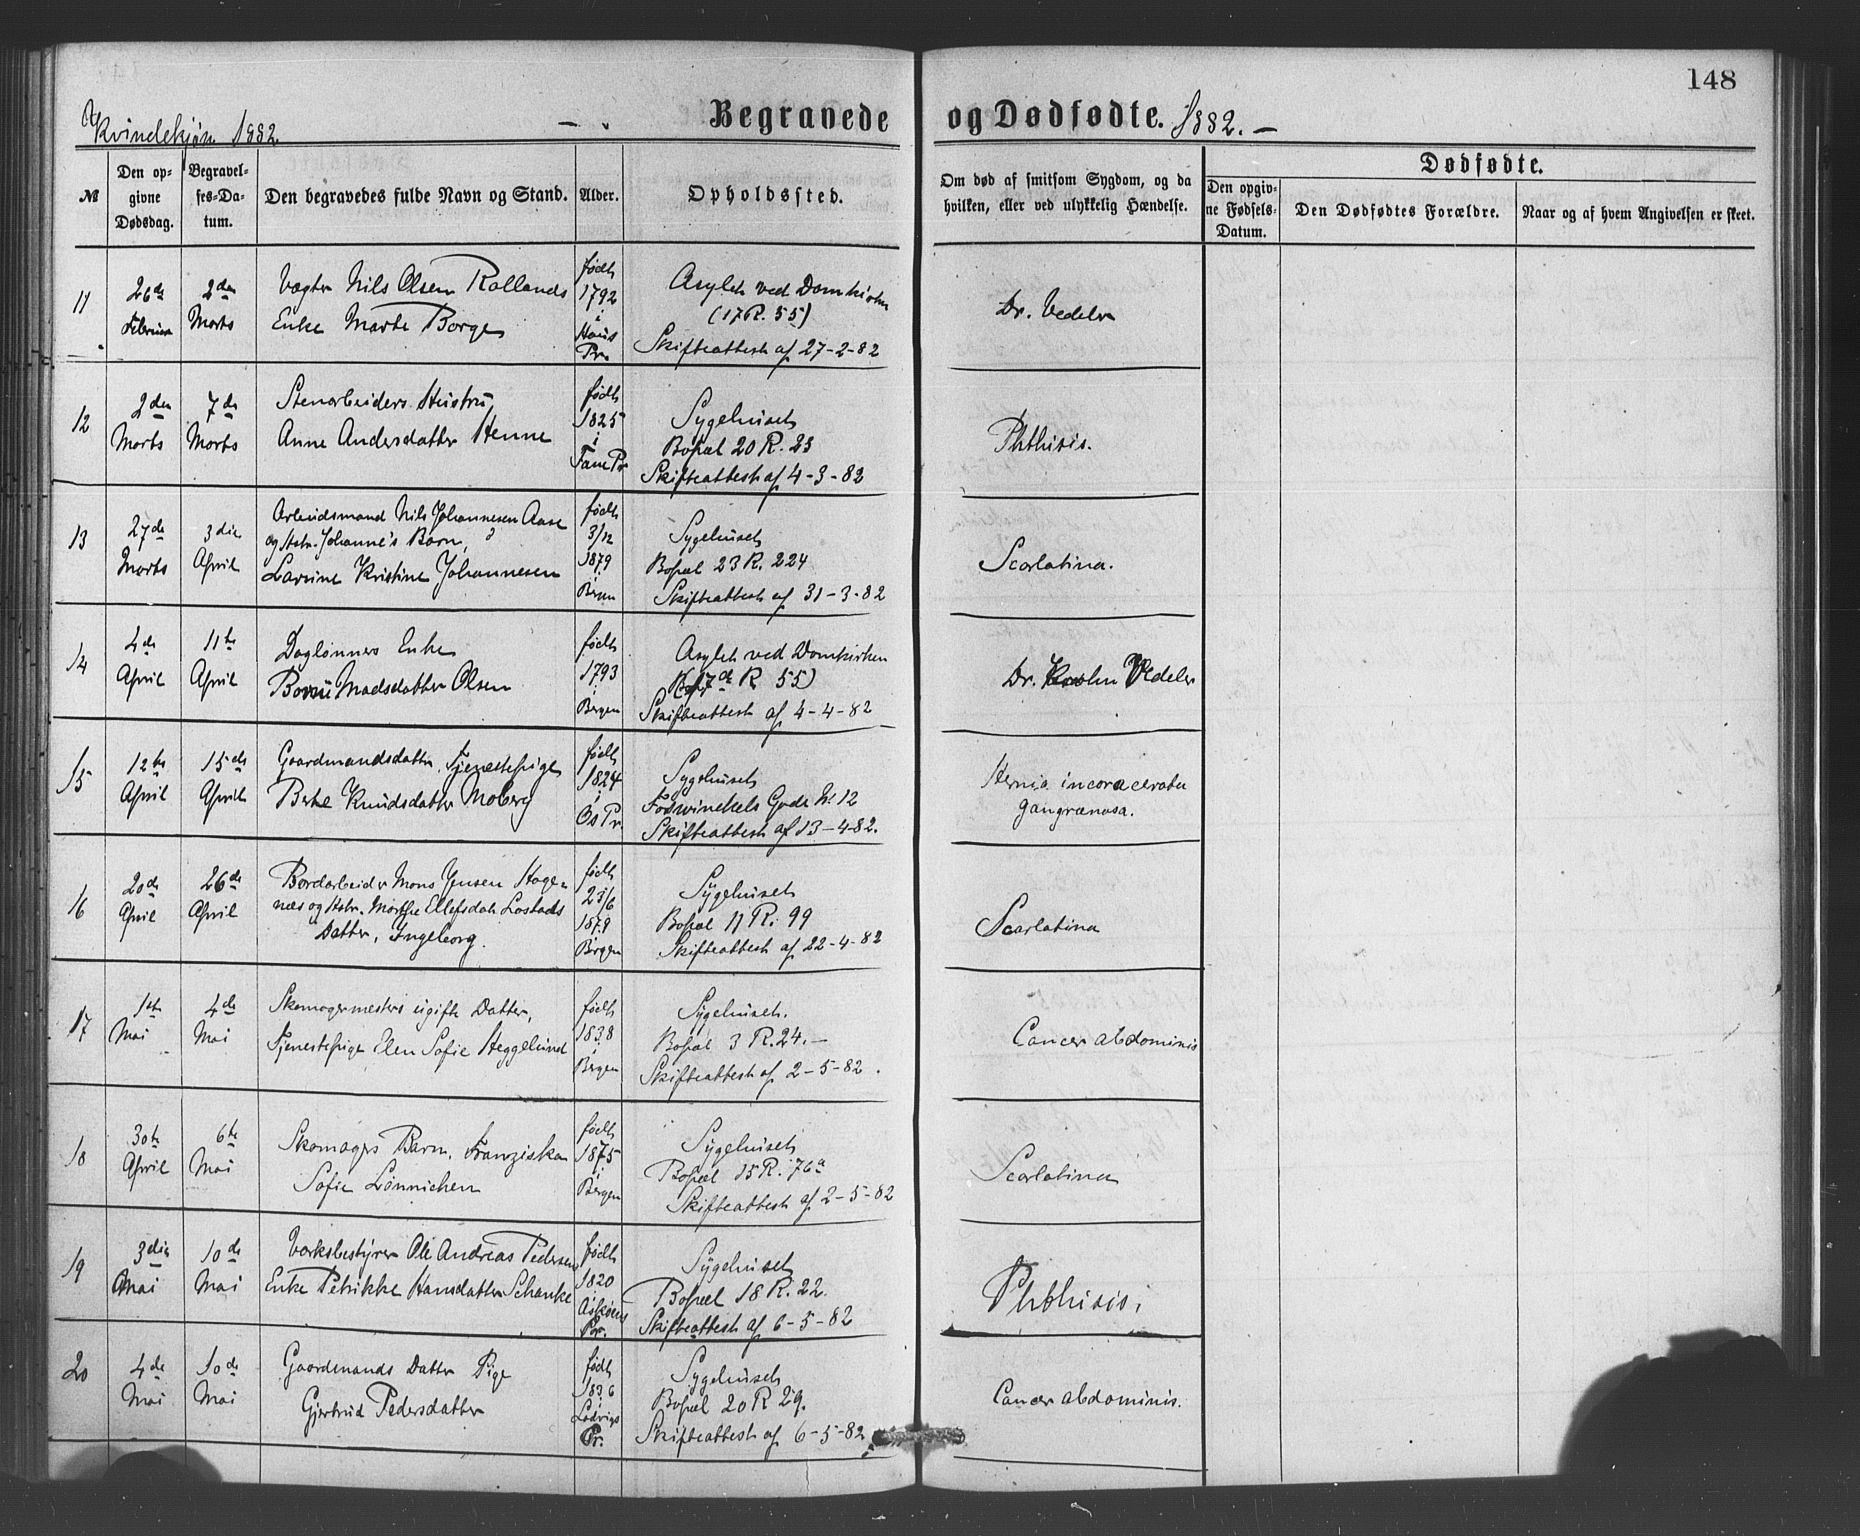 148
Kvindekjøn 1882.
Begravede og Dødfødte. 1882.
№
Den opgivne Dødsdag.
Begravelses-Datum.
Den begravedes fulde Navn og Stand.
Alder.
Opholdssted.
Om død af smitsom Sygdom, og da hvilken, eller ved ulykkelig Hændelse.
Dødfødte.
Den opgivne Fødsels-Datum.
Den Dødfødtes Forældre.
Naar og af hvem Angivelsen er skeet.
11
26de Februar
2den Marts
Vægter Nils Olsen Rollands
Enke Marte Borge
født 1792 i Haus Pr.
Asylet ved Domkirken
(17 R. 55)
Skifteattest af 27-2-82
Dr. Vedeler
12
2den Marts
7de Marts
Stenarbeiders Hustru,
Anne Andersdatter Henne
født 1825 i Fane Pr
Sygehuset
Bopæl 20 R. 23
Skifteattest af 4-3-82
Phthisis.
13
27de Marts
3die April
Arbeidsmand Nils Johannesen Aase
og Hstr. Johanne's Barn,
Larsine Kristine Johannesen
født 3/12 1879 i Bergen
Sygehuset
Bopæl 23 R. 224
Skifteattest af 31-3-82
Scarlatina.
14
4de April
11te April
Daglønners Enke
Madsdatter Olsen
født 1793 i Bergen
Asylet ved Domkirken
(17de R 55)
Skifteattest af 4-4-82
Dr. Vedeler
15
12te April
15de April
Gaardmandsdatter, Tjenestepige
Berte Knudsdatter Moberg
født 1824 i Os Pr.
Sygehuset
Gade № 12
Skifteattest af 13-4-82.
Hernia incaracerata
gangrænosa.
16
20de April
26de April
Bordarbeider Mons Jensen Hage-
næs og Hstr. Marthe Ellefsdatr Lostads
Datter, Ingeborg.
født 23/6 1879 Bergen
Sygehuset
Bopæl 11 R. 99
Skifteattest af 22-4-82
Scarlatina
17
1ste Mai
4de Mai
Skomagermesters ugifte Datter,
Tjenestepige Elen Sofie Heggelund
født 1838 i Bergen
Sygehuset.
Bopæl 3 R. 24.
Skifteattest af 2-5-82.
Cancer abdominis
18
30te April
6te Mai
Skomagers Barn, Franziska
Sofie Lønnichen
født 1875 i Bergen
Sygehuset
Bopæl 15 R. 76a
Skifteattest af 2-5-82
Scarlatina
19
3die Mai
10de Mai
Værksbestyrer Ole Andreas Pedersens
Enke Petrikke Hansdatter Schanke
født 1820 i Askøens Pr.
Sygehuset
Bopæl 18 R. 22.
Skifteattest af 6-5-82
Phthisis.
20
4de Mai
10de Mai
Gaardmands Datter Pige
Gjertrud Pedersdatter
født 1836 i Ladvigs Pr.
Sygehuset
Bopæl 20 R 29.
Skifteattest af 6-5-82
Cancer abdominis.